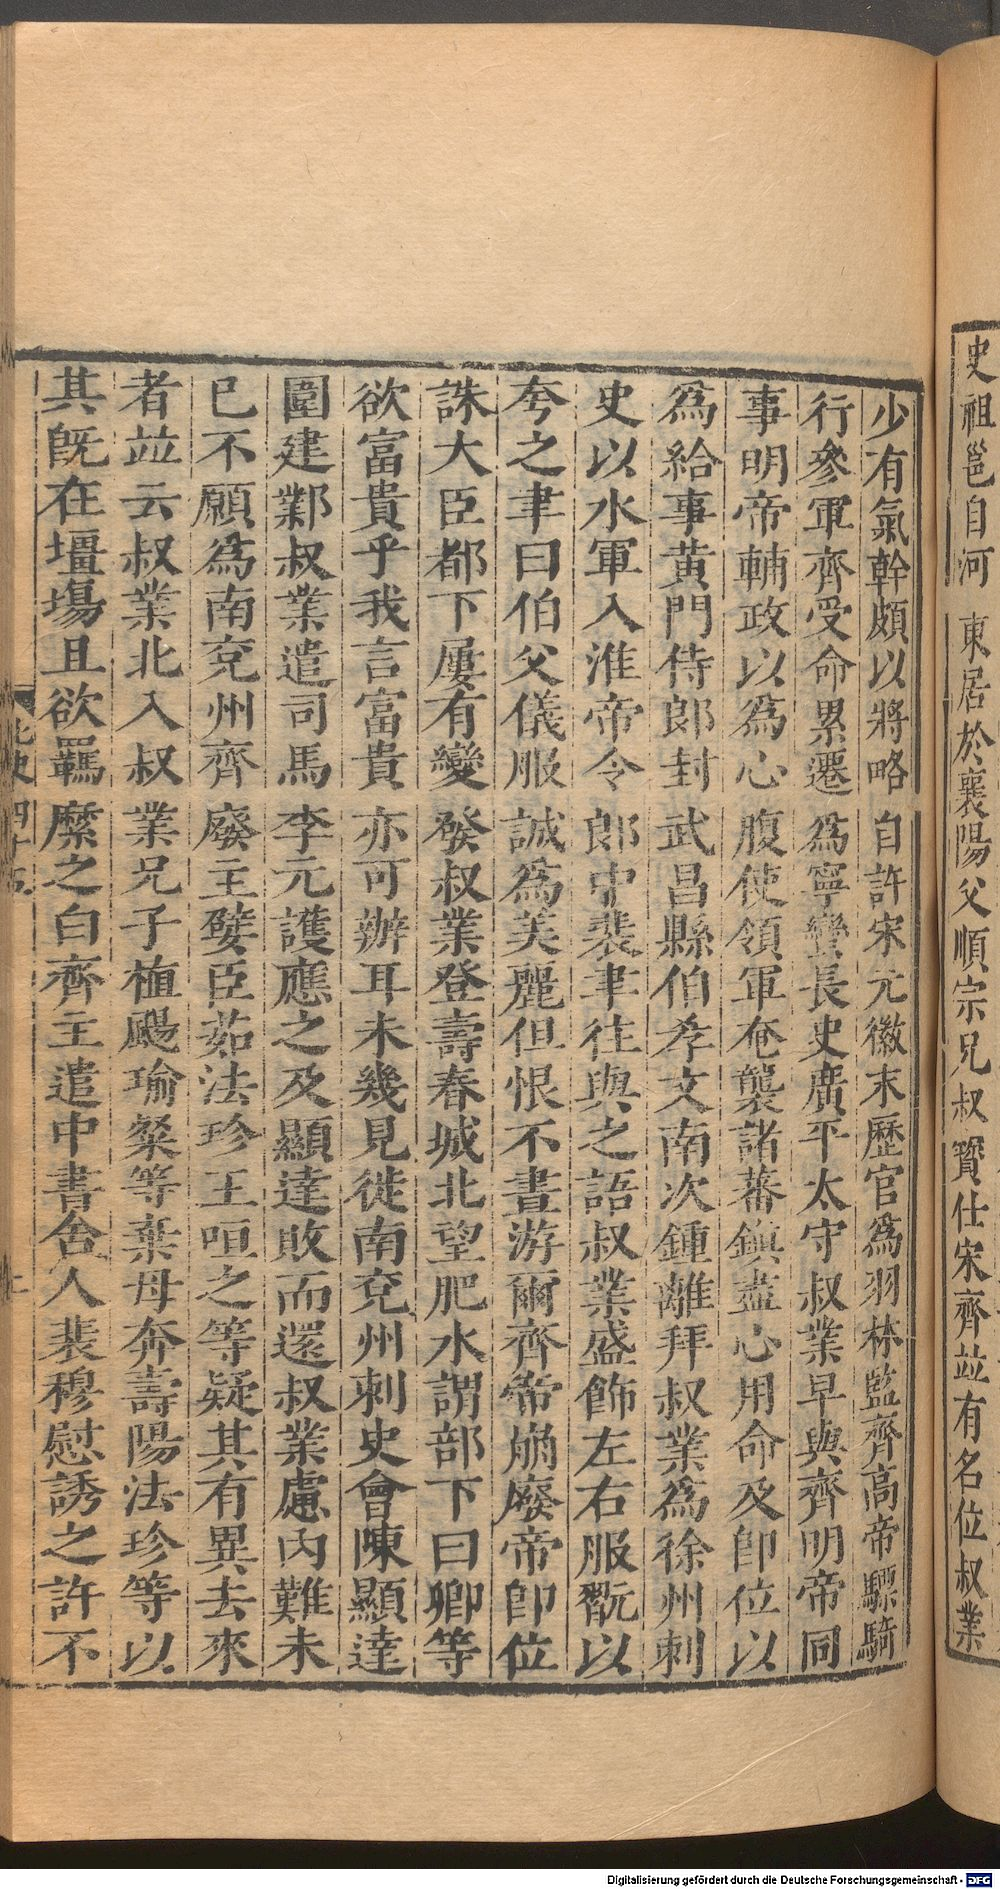 史祖邕自河東居於襄陽父順宗兄叔寶仕宋齊並有名位叔業
少有氣幹頗以將略自許宋元徽末歷官爲羽林監齊高帝驃騎
行參軍齊受命累遷爲寧蠻長史廣平太守叔業早與齊明帝同
事明帝輔政以爲心腹使領軍奄襲諸蕃鎮盡心用命及即位以
爲給事黃門侍郎封武昌縣伯孝文南次鍾離拜叔業爲徐州刺
史以水軍入淮帝令郎中裴聿往與之語叔業盛飾左右服翫以
夸之聿曰伯父儀服誠爲美麗但恨不晝游爾齊帝崩廢帝即位
誅大臣都下屢有變發叔業登壽春城北望肥水謂部下曰卿等
欲富貴乎我言富貴亦可辦耳未幾見徙南兗州刺史會陳顯達
圍建鄴叔業遣司馬李元護應之及顯達敗而還叔業慮內難未
已不願爲南兗州齊廢主嬖臣茹法珍王咺之等疑其有異去來
者並云叔業北入叔業兄子植颺瑜粲等棄母奔壽陽法珍等以
其既在壃場且欲羈縻之白齊主遣中書舍人裴穆慰誘之許不
北史四十五
Digitalisierung gefördert durch die Deutsche Forschungsgemeinschaft - DFG